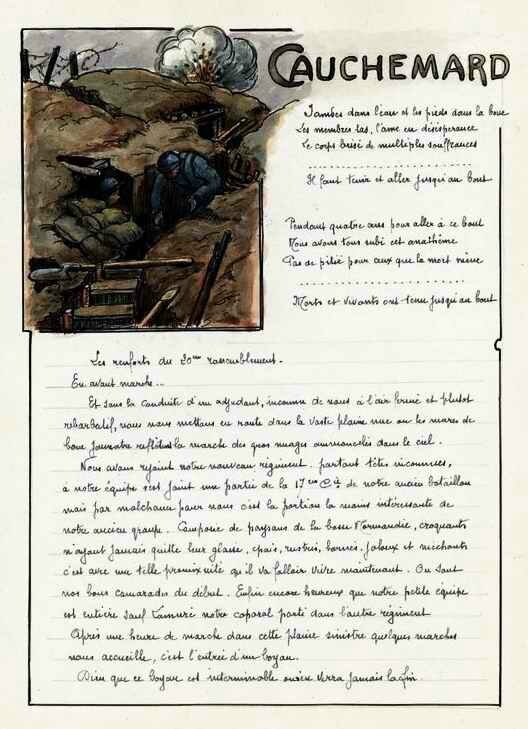 CAUCHEMARD
Jambes dans l'eau et les pieds dans la boue
Les membres las, l'âme en désespérance
Le corps brisé de multiples souffrances
Il faut tenir et aller jusqu'au bout
Pendant quatre ans pour aller à ce bout
Nous avons tous subi cet anathème
Pas de pitié pour ceux que la mort mène
Morts et vivants ont tenu jusqu'au bout
Les renforts du 20ème rassemblement.
En avant marche...
Et sous la conduite d'un adjudant, inconnu de nous à l'air fermé et plutot
rebarbatif, nous nous mettons en route dans la vaste plaine nue où les mares de
boue jaunatre reflètent la marche des gros nuages ammoncelés dans le ciel.
Nous avons rejoint notre nouveau régiment. partout têtes inconnues,
à notre équipe s'est joint une partie de la 17ème Cie de notre ancien bataillon
mais par malchance pour nous c'est la portion la moins intéressante de
notre ancien groupe. Composé de paysans de la basse Normandie, croquants
n'ayant jamais quitté leur glaise, épais, rustres, bornés, jaloux et méchants
c'est avec une telle promixuité qu'il va falloir vivre maintenant. Où sont
nos bons camarades du début. Enfin encore heureux que notre petite équipe
est entière sauf notre caporal parti dans l'autre régiment
Après une heure de marche dans cette plaine sinistre quelques marches
nous accueille, c'est l'entrée d'un boyau.
Dieu que ce boyau est interminable on n'en verra jamais la fin.